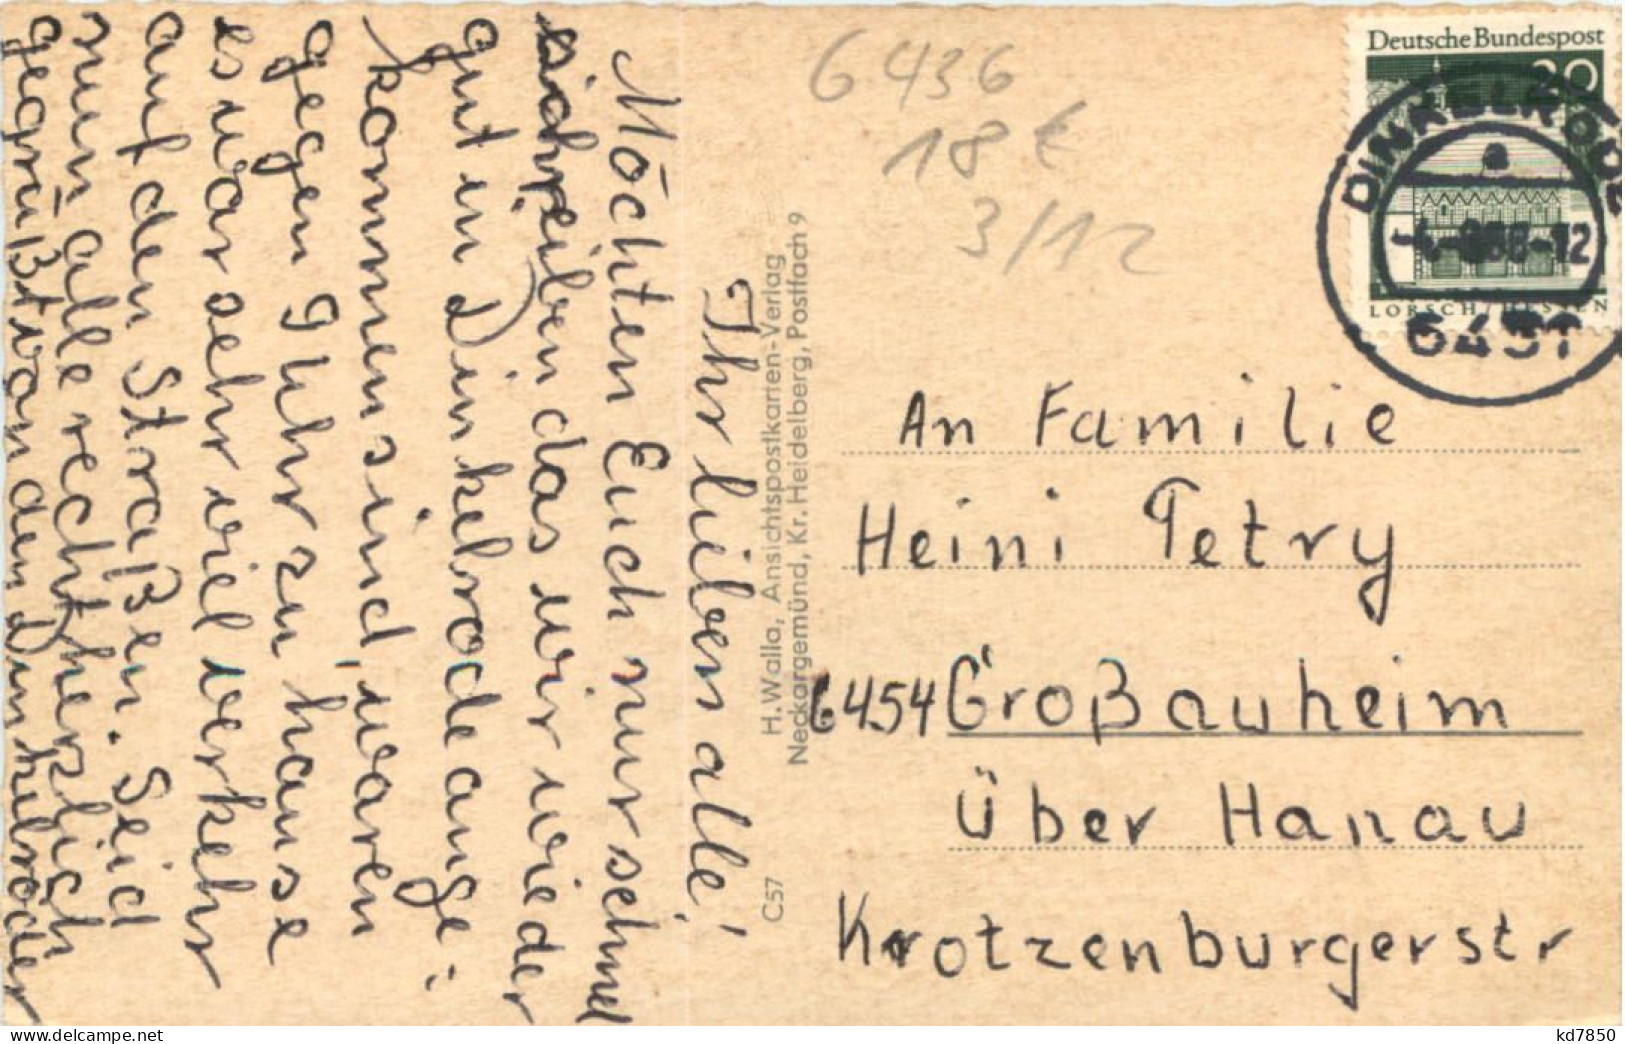 Ihr lieben alle!
Möchten Euch nur schnel
schreiben das wir wieder
gut in Dinkelrode ange-
kommen sind, waren
gegen 9 Uhr zu hause
es war sehr viel verkehr
auf den Straßen. Seid
nun alle recht herzlich
gegrüßt von den Dinkelröder
H. Walla, Ansichtspostkarten-Verlag
Neckargemünd, Kr. Heidelberg, Postfach 9
C57
6436
18 €
3/12
Deutsche Bundespost
20
LORSCH/HESSEN
DINKELRODE
a
6431
An Familie
Heini Petry
6454 Großauheim
Über Hanau
Krotzenburgerstr
www.delcampe.net
kd7850